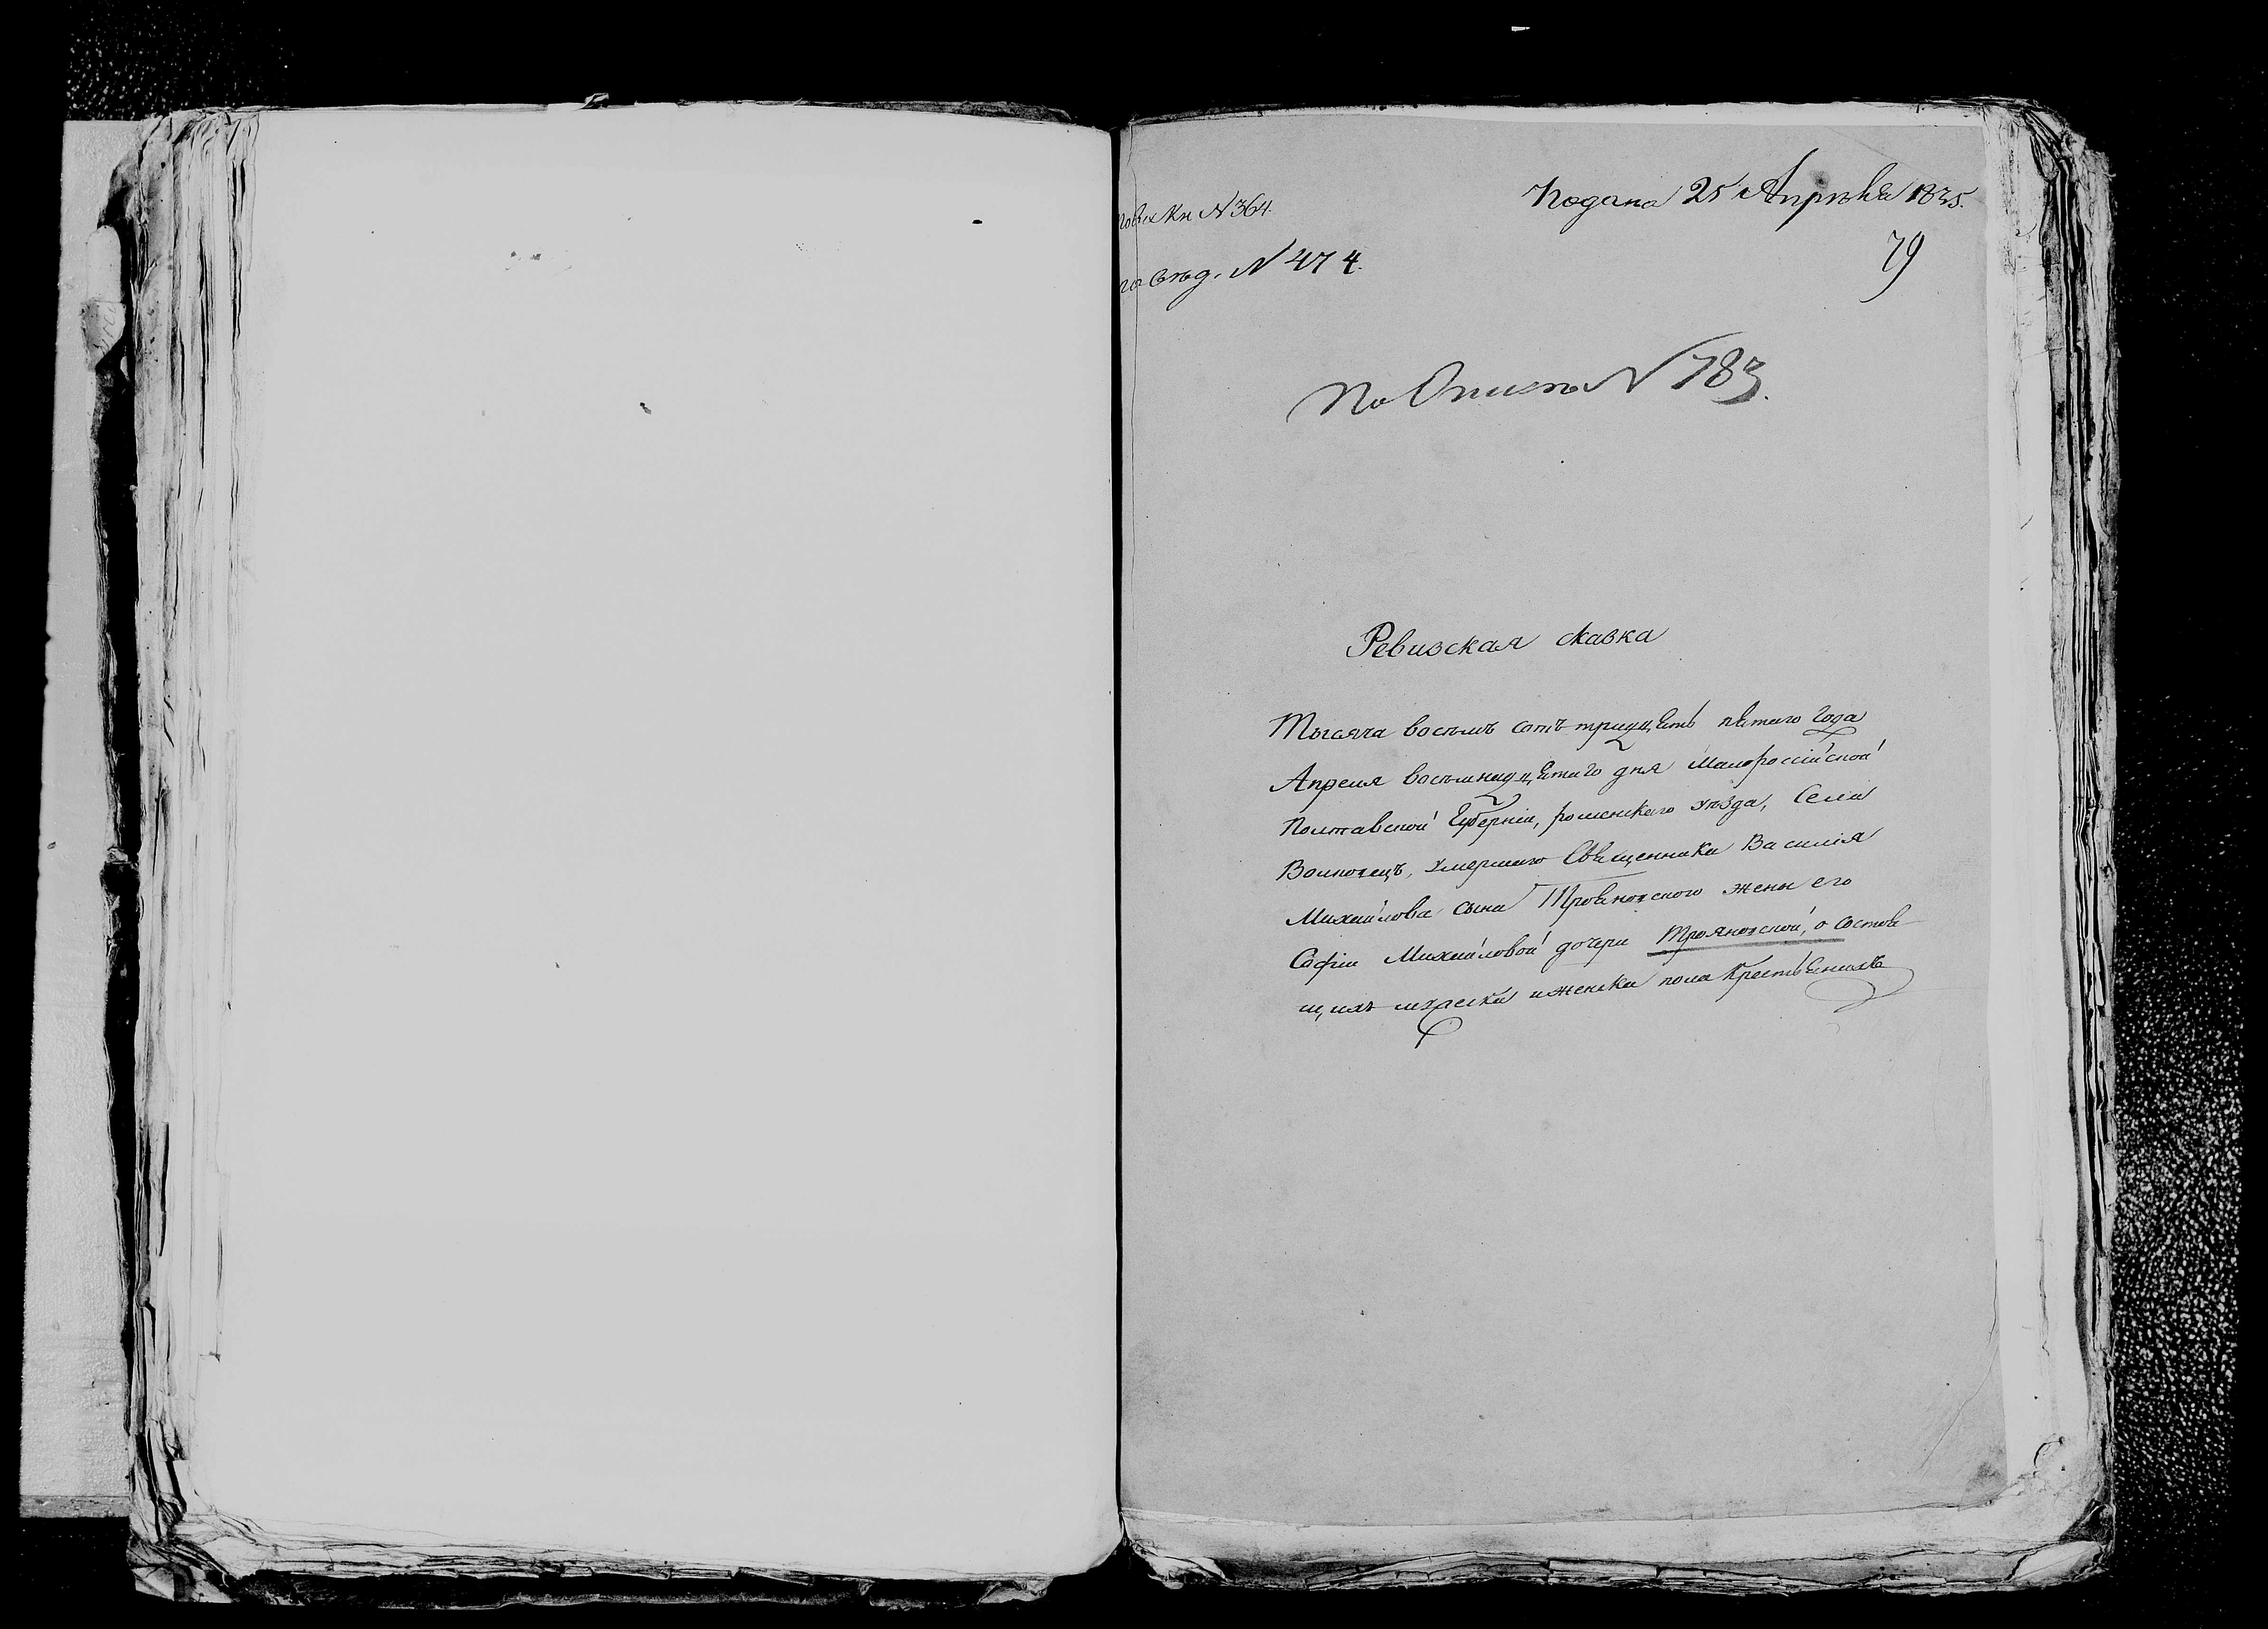 Подана 25 Апрѣля 1835.
по вх Кн №364.
79
по вѣд. № 474.
По Описи № 783.
Ревизская сказка
Тысяча восемъ сотъ тридцять пятаго года
Апреля восемнадцятаго дня Малороссійской
Полтавской Губерніи, роменскаго уѣзда, Села
Волковецъ, умершаго Священника Василія
Михайлова сына Трояновского жены его
Софіи Михайловой дочери Трояновской, о состоя
щихъ мужеска и женска пола Крестьянахъ